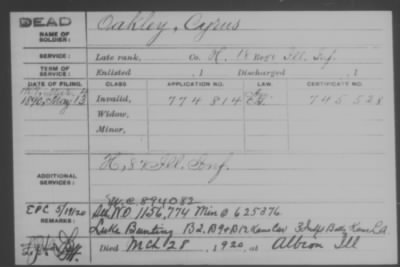 DEAD
NAME OF SOLDIER: Oakley, Cyrus
SERVICE: Late rank, Co. H, 18 Reg't Ill. Inf.
TERM OF SERVICE: Enlisted , 1 Discharged , 1
DATE OF FILING. CLASS APPLICATION NO. LAW. CERTIFICATE NO.
1890, May 13 Invalid, 774814 745528
Widow,
Minor,
ADDITIONAL SERVICES: H, 8 Ill. Inf.
W.C. 894082
CPC 5/19/20 W.O 1156,774 Min O 625376
REMARKS: Luke Bunting
Died Mch 28, 1920, at Albion Ill